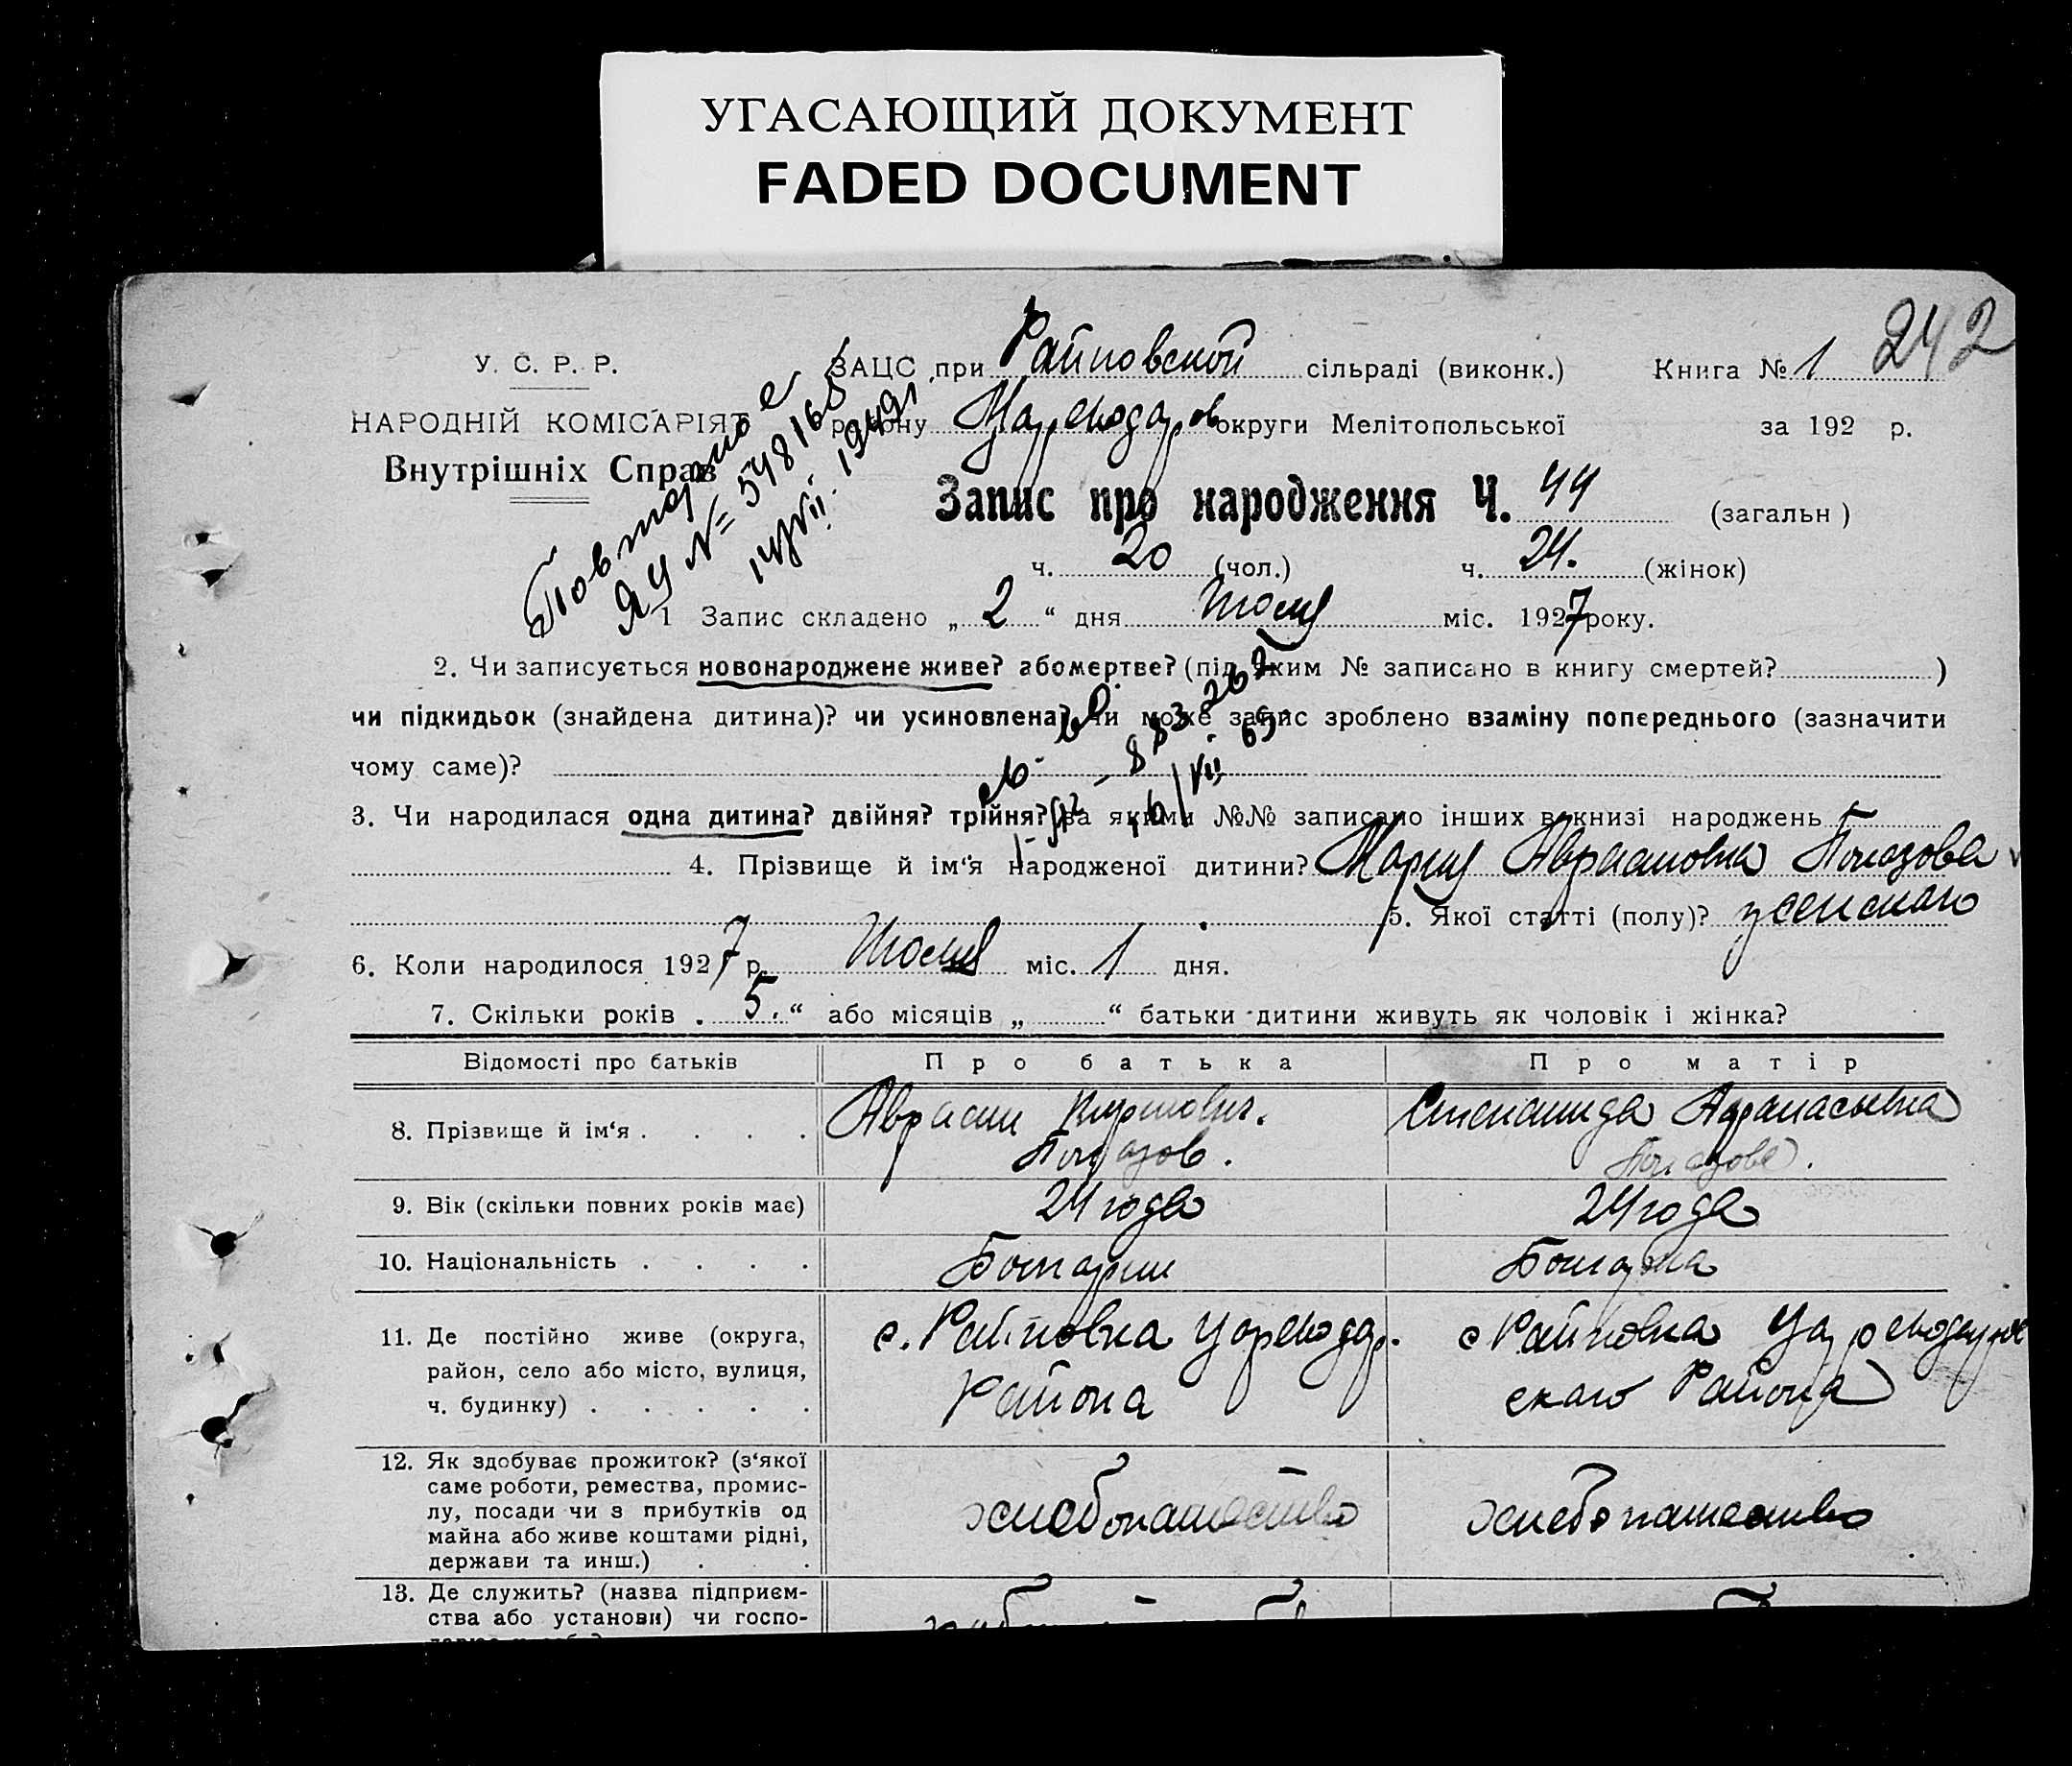 УГАСАЮЩИЙ ДОКУМЕНТ
FADED DOCUMENT
242
У. С. Р. Р.
НАРОДНІЙ КОМІСАРІЯТ
Внутрішніх Справ
ЗАЦС при Райновской сільраді (виконк.) Книга № 1
району Цареводаров округи Мелітопольської за 192 р.
Повторное
ЯЧ № 548165
14/VII. 1949г.
Запис про народження Ч. 44 (загальн)
ч. 20 (чол.) ч. 24. (жінок)
1 Запис складено „ 2 “ дня Июля міс. 1927 року.
2. Чи записується новонароджене живе? або мертве? (під яким № записано в книгу смертей? )
чи підкидьок (знайдена дитина)? чи усиновлена? чи може запис зроблено взаміну попереднього (зазначити
чому саме)?
3. Чи народилася одна дитина? двійня? трійня? (за якими №№ записано інших в книзі народжень
4. Прізвище й ім‘я народженої дитини? Мария Аврамовна
5. Якої статті (полу)? женскаго
6. Коли народилося 1927 р. Июля міс. 1 дня.
7. Скільки років . 5. “ або місяців „ “ батьки дитини живуть як чоловік і жінка?
Відомості про батьків Про батька Про матір
8. Прізвище й ім‘я . . . . Аврам Степанида Афанасьевна
9. Вік (скільки повних років має) 24 года 24 года
10. Національність . . . . Болгарин Болгарка
11. Де постійно живе (округа, с. Райновка Цареводар. с Райновка Цареводаров
район, село або місто, вулиця, Района скаго Района
ч. будинку) . . . . .
12. Як здобуває прожиток? (з‘якої
саме роботи, ремества, промис-
лу, посади чи з прибутків од хлебопашество хлебопашество
майна або живе коштами рідні,
держави та инш.) . .
13. Де служить? (назва підприєм-
ства або установи) чи госпо-